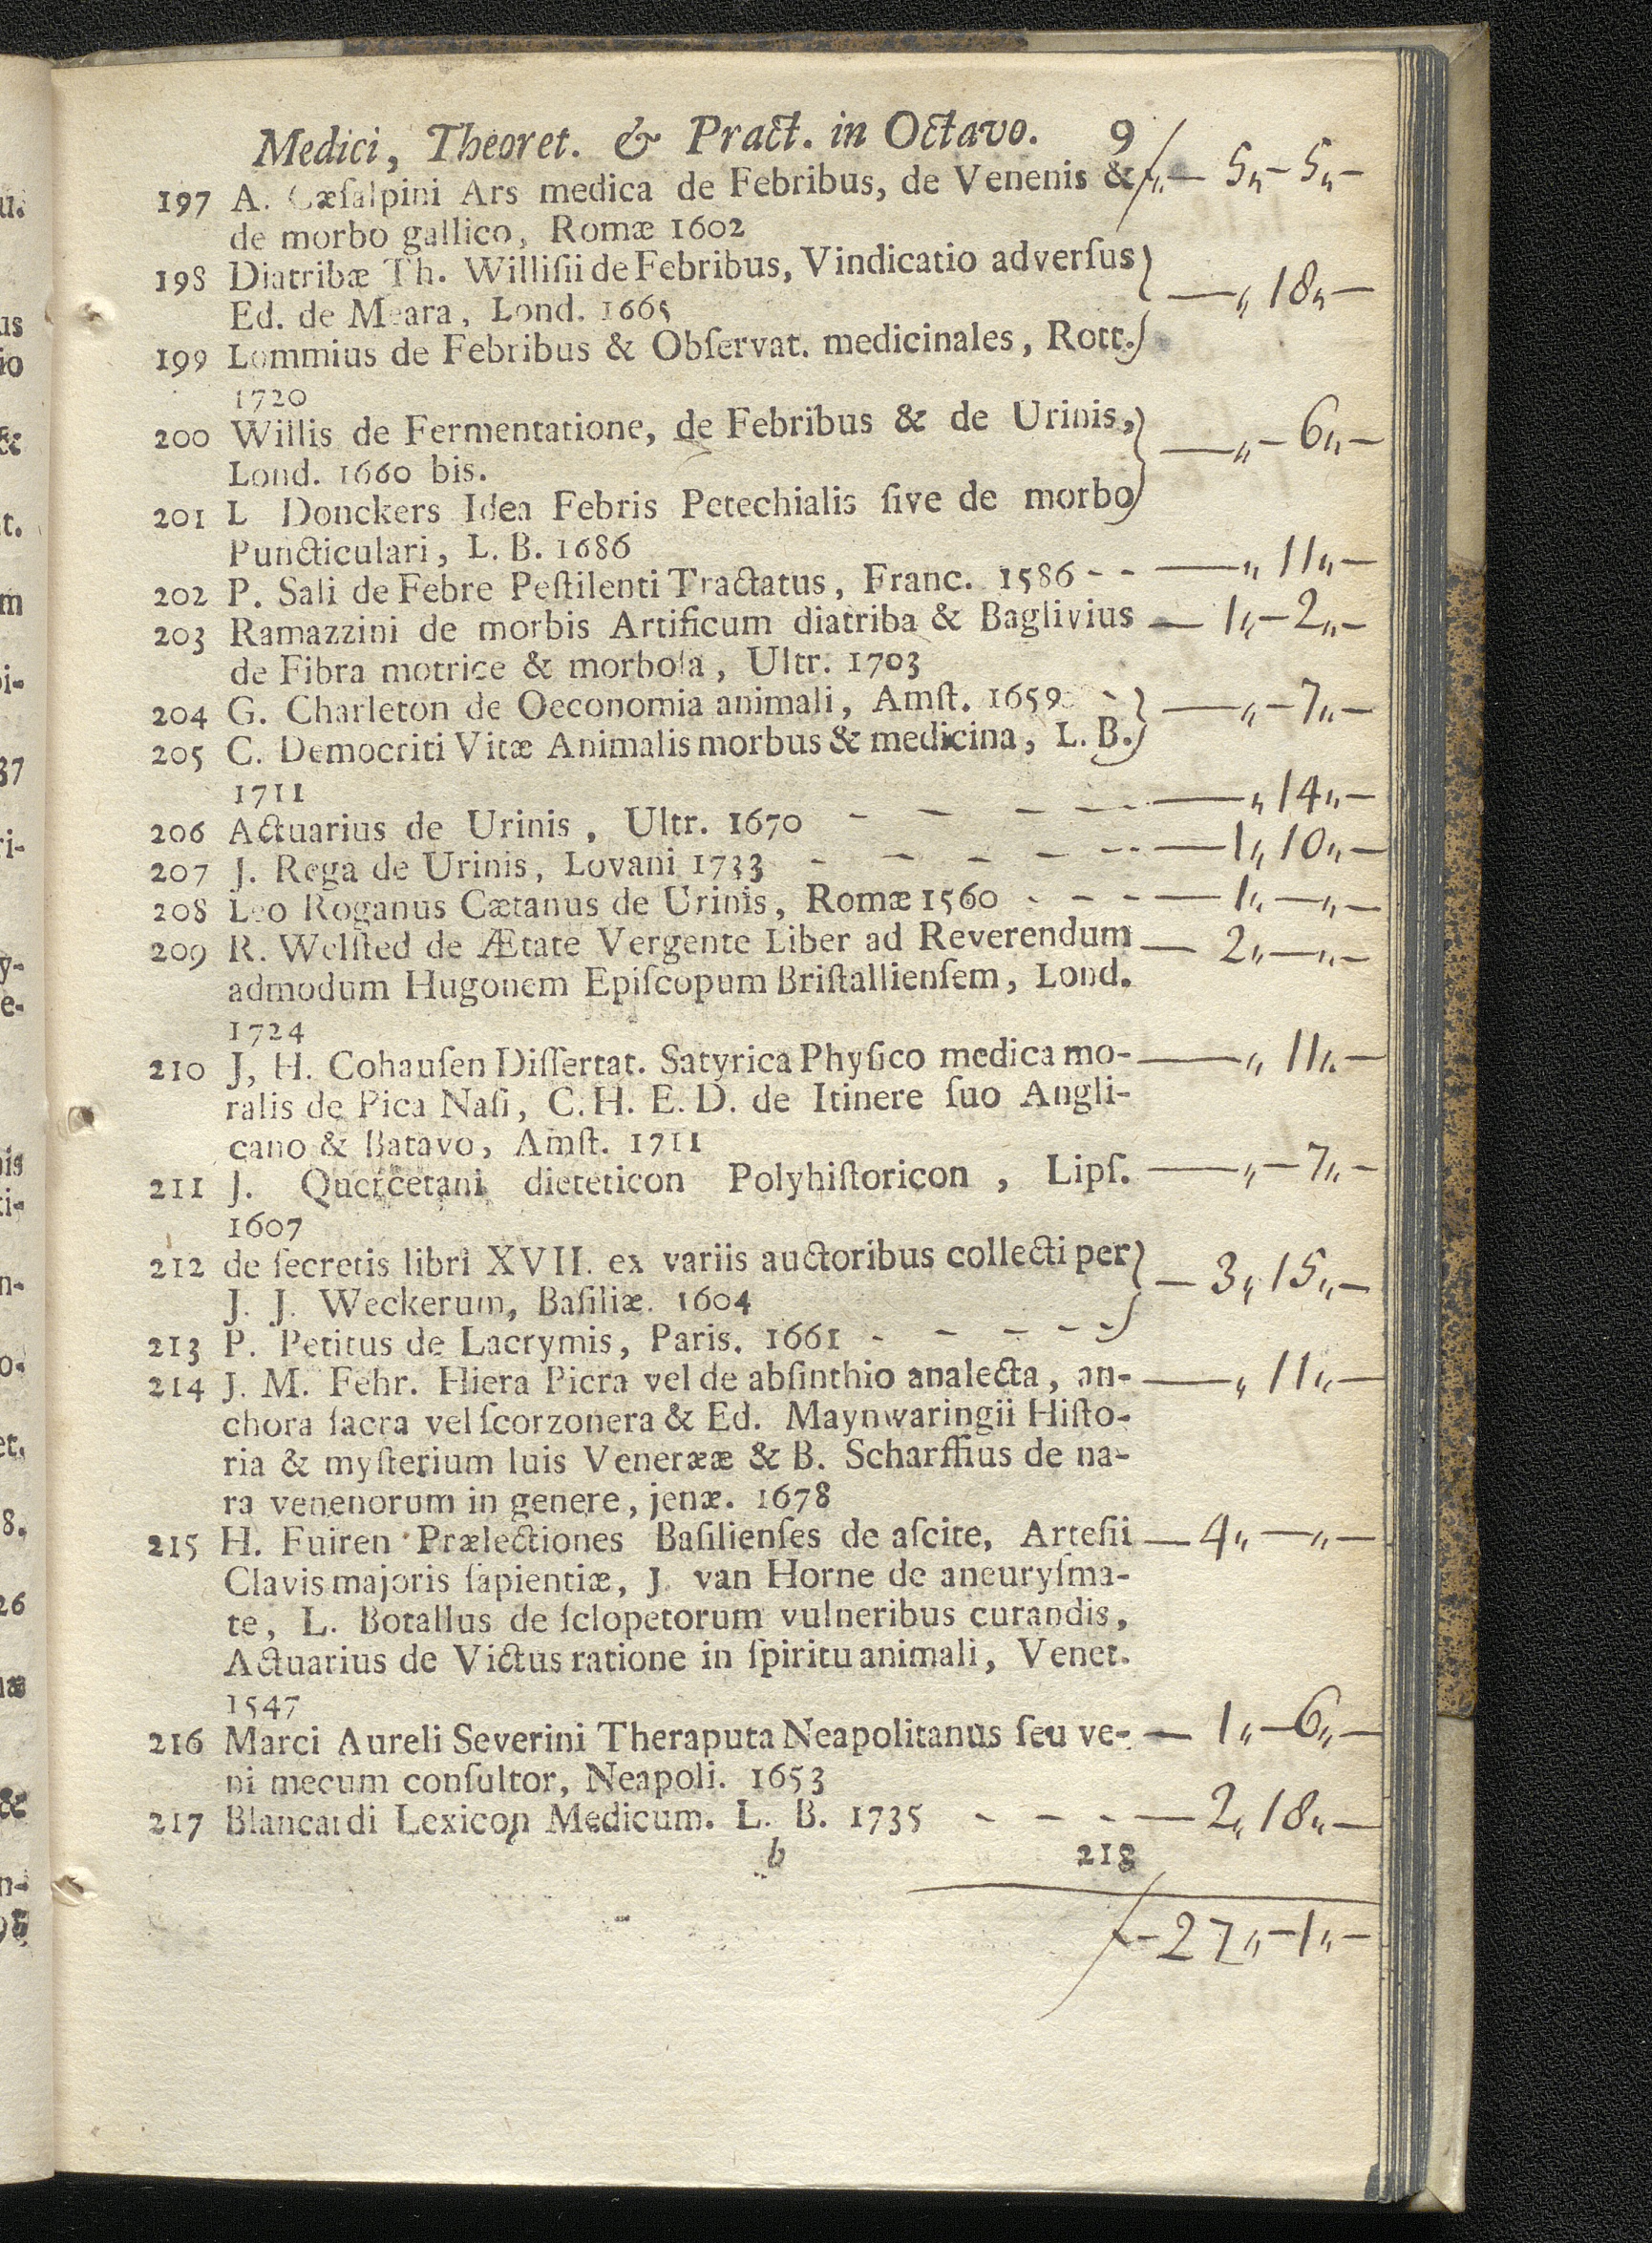 Medici, Theoret. & Pract. in Octavo. 9
197 A. Cæſalpini Ars medica de Febribus, de Venenis & ƒ„— 5„—5„—
de morbo gallico, Romæ 1602
198 Diatribæ Th. Williſii de Febribus, Vindicatio adverſus } —„ 18„—
Ed. de Meara, Lond. 1665
199 Lommius de Febribus & Obſervat. medicinales, Rott.
1720
200 Willis de Fermentatione, de Febribus & de Urinis, } —„— 6„—
Lond. 1660 bis.
201 L Donckers Idea Febris Petechialis ſive de morbo
Puncticulari, L. B. 1686
202 P. Sali de Febre Peſtilenti Tractatus, Franc. 1586 - - —„ 11„—
203 Ramazzini de morbis Artificum diatriba & Baglivius — 1„—2„—
de Fibra motrice & morboſa, Ultr. 1703
204 G. Charleton de Oeconomia animali, Amſt. 1659 - } —„—7„—
205 C. Democriti Vitæ Animalis morbus & medicina, L. B.
1711
206 Actuarius de Urinis, Ultr. 1670 - - - - - —„ 14„—
207 J. Rega de Urinis, Lovani 1733 - - - - - — 1„ 10„—
208 Leo Roganus Cætanus de Urinis, Romæ 1560 - - - — 1„—„—
209 R. Welſted de Ætate Vergente Liber ad Reverendum — 2„—„—
admodum Hugonem Epiſcopum Briſtallienſem, Lond.
1724
210 J, H. Cohauſen Diſſertat. Satyrica Phyſico medica mo- —„ 11„—
ralis de Pica Naſi, C. H. E. D. de Itinere ſuo Angli-
cano & Batavo, Amſt. 1711
211 J. Quercetani dieteticon Polyhiſtoricon , Lipſ. —„—7„—
1607
212 de ſecretis libri XVII. ex variis auctoribus collecti per } — 3„ 15„—
J. J. Weckerum, Baſiliæ. 1604
213 P. Petitus de Lacrymis, Paris. 1661 - - - - -
214 J. M. Fehr. Hiera Picra vel de abſinthio analecta, an- —„ 11„—
chora ſacra vel ſcorzonera & Ed. Maynwaringii Hiſto-
ria & myſterium luis Venerææ & B. Scharffius de na-
ra venenorum in genere, jenæ. 1678
215 H. Fuiren Prælectiones Baſilienſes de aſcite, Arteſii — 4„—„—
Clavis majoris ſapientiæ, J. van Horne de aneuryſma-
te, L. Botallus de ſclopetorum vulneribus curandis,
Actuarius de Victus ratione in ſpiritu animali, Venet.
1547
216 Marci Aureli Severini Theraputa Neapolitanus ſeu ve- — 1„—6„—
ni mecum conſultor, Neapoli. 1653
217 Blancardi Lexicon Medicum. L. B. 1735 - - - — 2„ 18„—
b 218
ƒ—27„—1„—